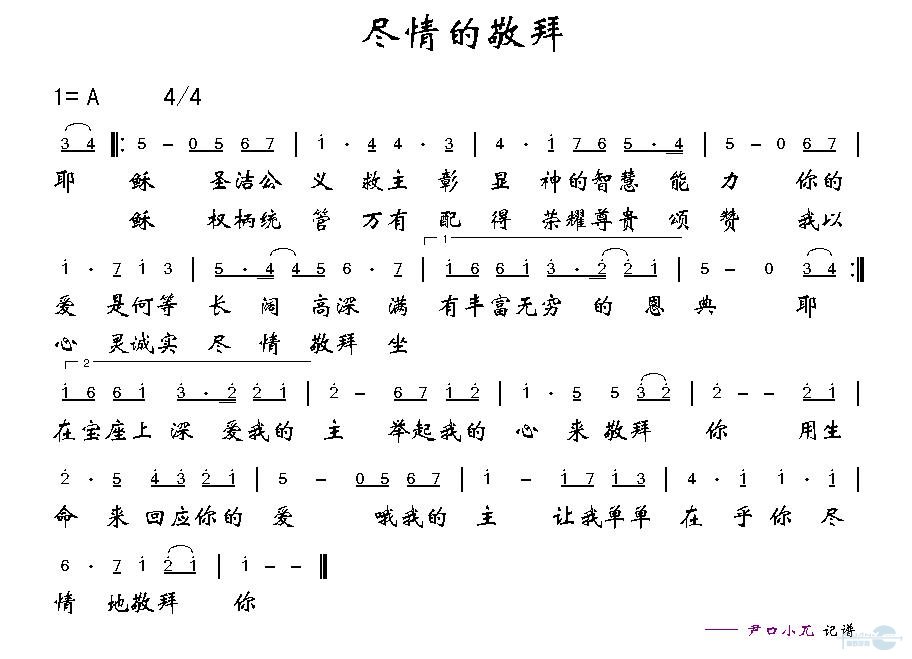 尽情的敬拜
1= A 4/4
3 4 5 – 0 5 6 7 | 1 · 4 4 · 3 | 4 · 1 7 6 5 · 4 | 5 – 0 6 7 |
耶 稣 圣洁公 义 救主 彰 显 神的智慧 能 力 你的
稣 权柄统 管 万有 配 得 荣耀尊贵 颂 赞 我以
1
1 · 7 1 3 | 5 · 4 4 5 6 · 7 | 1 6 6 1 3 · 2 2 1 | 5 – 0 3 4
爱 是何等 长 阔 高深 满 有丰富无穷 的 恩 典 耶
心 灵诚实 尽 情 敬拜 坐
2
1 6 6 1 3 · 2 2 1 | 2 – 6 7 1 2 | 1 · 5 5 3 2 | 2 – – 2 1 |
在宝座上 深 爱我的 主 举起我的 心 来 敬拜 你 用生
2 · 5 4 3 2 1 | 5 – 0 5 6 7 | 1 – 1 7 1 3 | 4 · 1 1 · 1 |
命 来 回应你的 爱 哦我的 主 让我单单 在 乎 你 尽
6 · 7 1 2 1 | 1 – –
情 地敬拜 你
—— 尹口小瓦 记谱